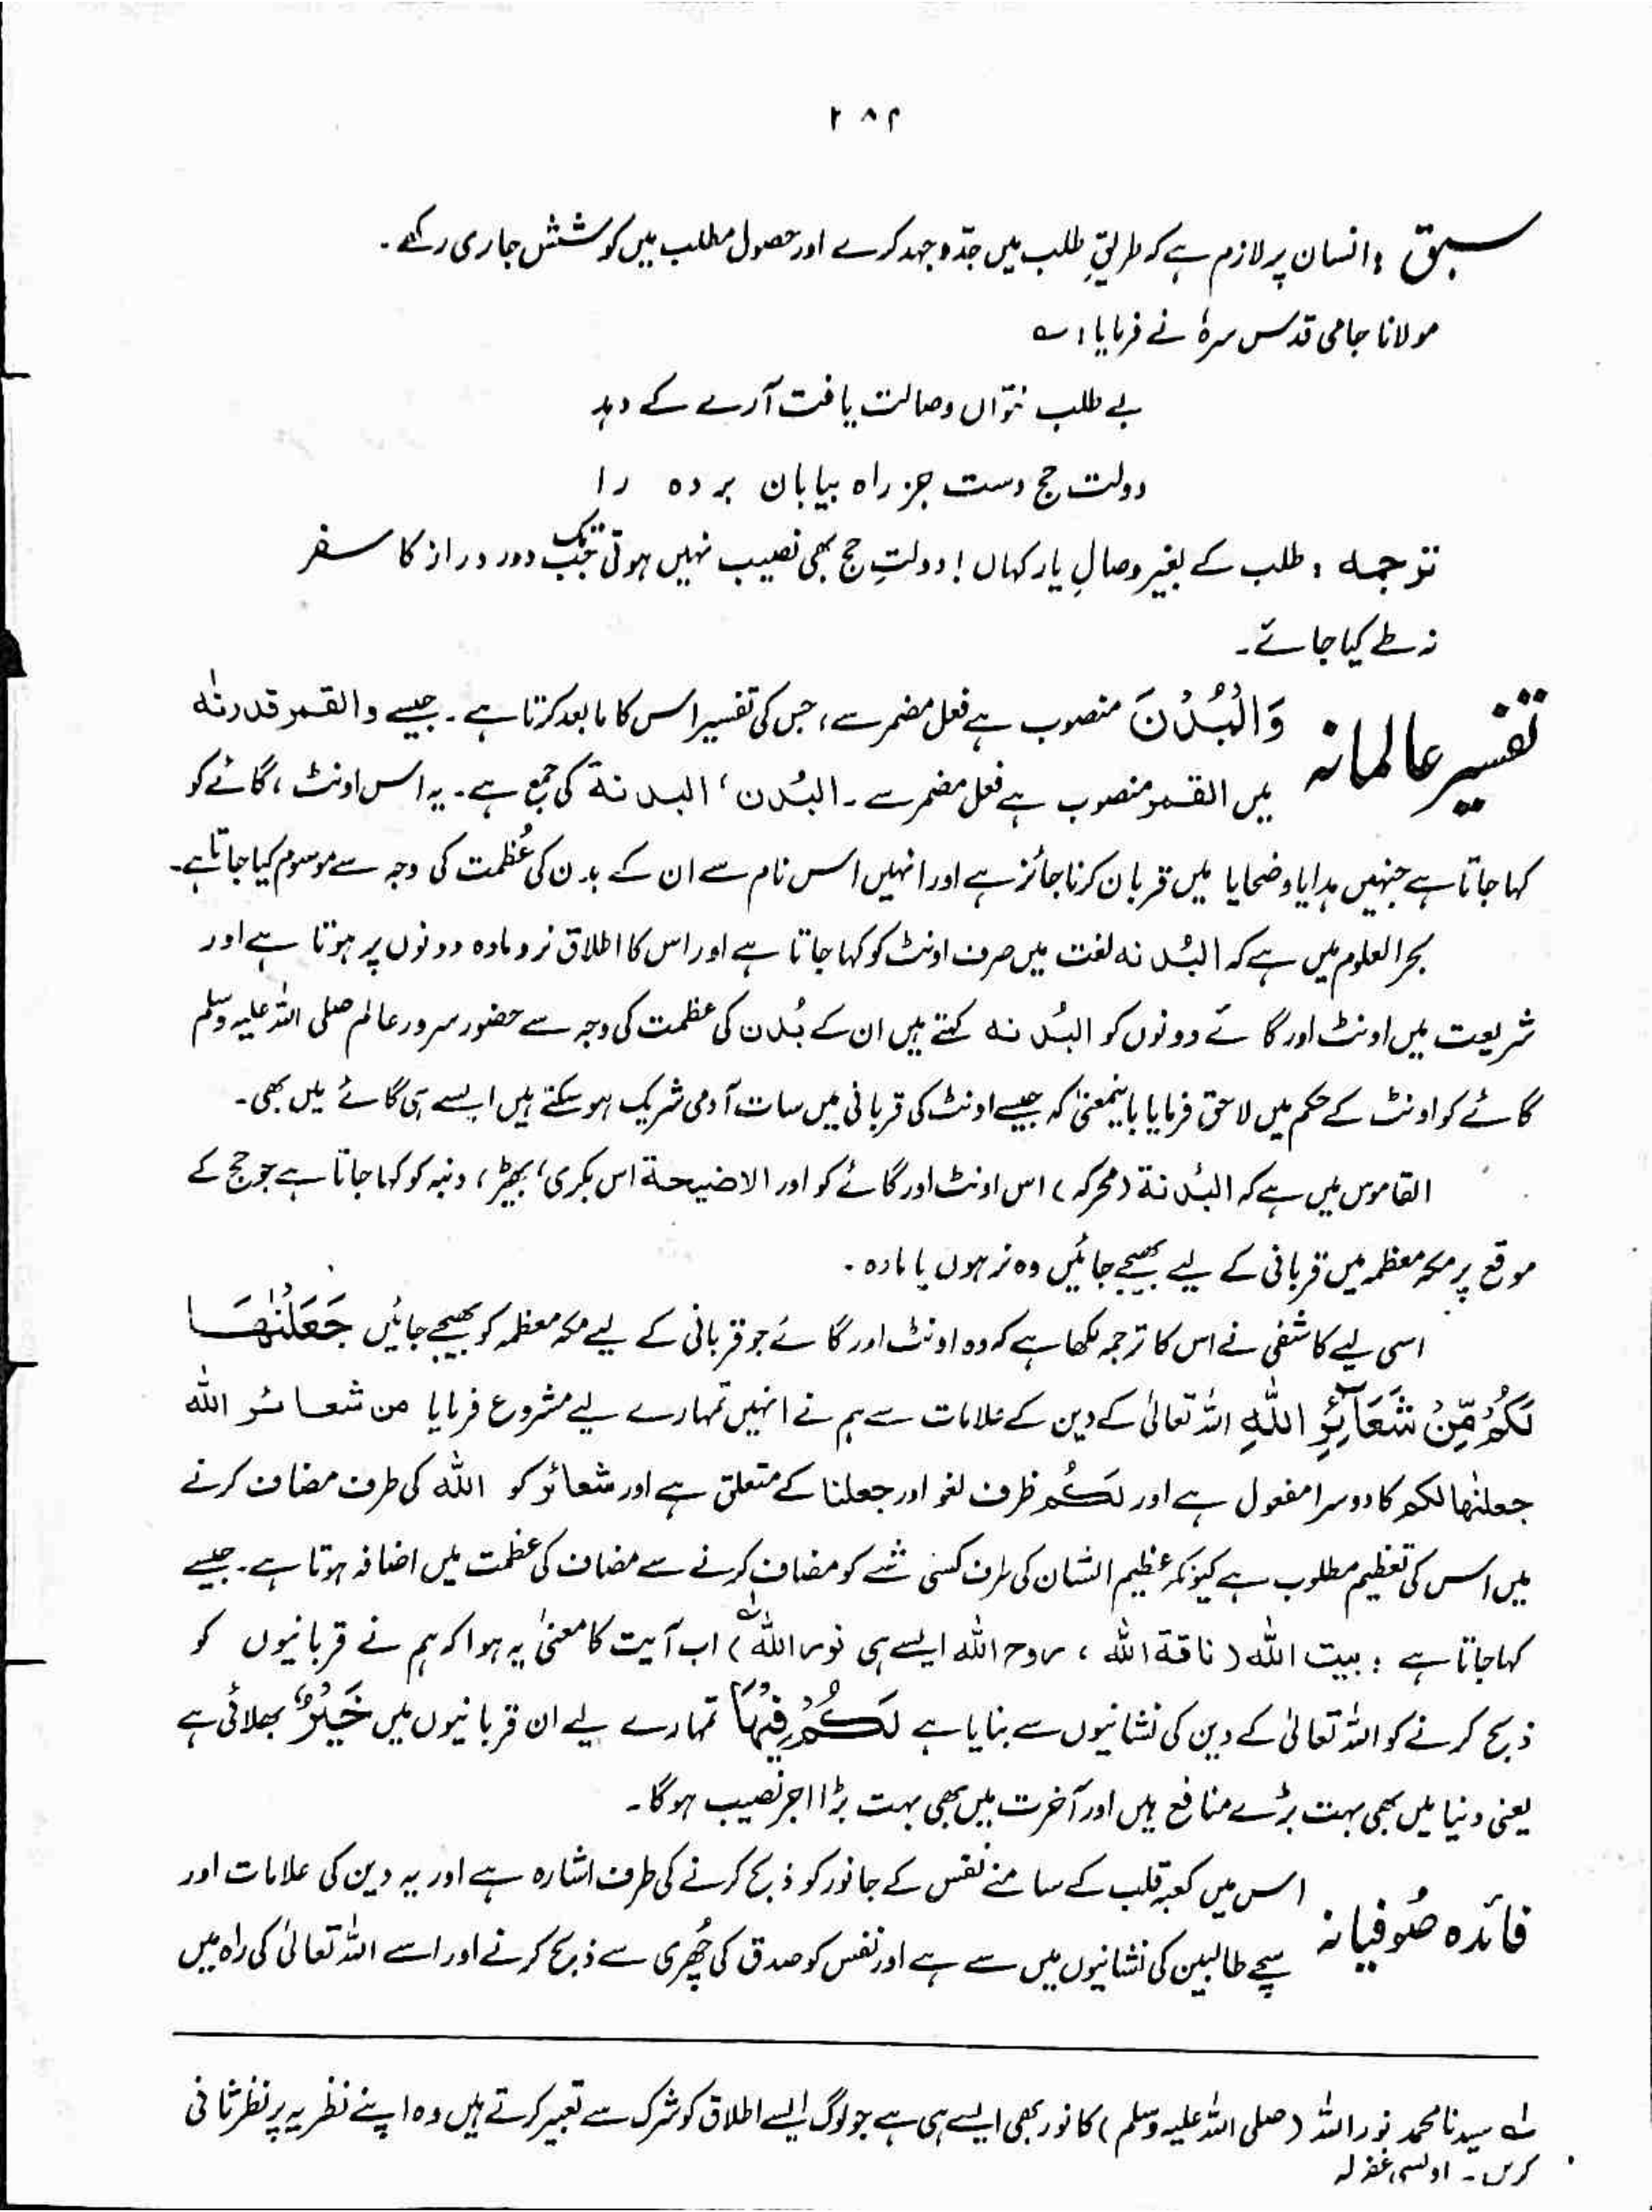 ۲۸۲
سبق : انسان پر لازم ہے کہ طریقِ طلب میں جدّوجہد کرے اور حصول مطلب میں کوشش جاری رکھے ۔
مولانا جامی قدس سرہٗ نے فرمایا : ؎
بے طلب نتواں وصالت یافت آرے کے دہد
دولت حج دست جز راہ بیابان بردہ را
ترجمہ : طلب کے بغیر وصالِ یار کہاں ! دولتِ حج بھی نصیب نہیں ہوتی جب تک دور دراز کا سفر
نہ طے کیا جائے ۔
تفسیر عالمانہ وَالْبُدْنَ منصوب ہے فعل مضمر سے ، جس کی تفسیر اس کا مابعد کرتا ہے ۔ جیسے والقمر قدرنٰہ
میں القمر منصوب ہے فعل مضمر سے ۔ البُدن ، البدنۃ کی جمع ہے ۔ یہ اس اونٹ ، گائے کو
کہا جاتا ہے جنہیں ہدایا وضحایا میں قربان کرنا جائز ہے اور انہیں اس نام سے ان کے بدن کی عُظمت کی وجہ سے موسوم کیا جاتا ہے ۔
بحر العلوم میں ہے کہ البُدنہ لغت میں صرف اونٹ کو کہا جاتا ہے اور اس کا اطلاق نر و مادہ دونوں پر ہوتا ہے اور
شریعت میں اونٹ اور گائے دونوں کو البُدنہ کہتے ہیں ان کے بُدن کی عظمت کی وجہ سے حضور سرور عالم صلی اللہ علیہ وسلم
گائے کو اونٹ کے حکم میں لاحق فرمایا باینمعنیٰ کہ جیسے اونٹ کی قربانی میں سات آدمی شریک ہو سکتے ہیں ایسے ہی گائے میں بھی ۔
القاموس میں ہے کہ البُدنۃ (محرکہ) اس اونٹ اور گائے کو اور الاضیحۃ اس بکری ، بھیڑ ، دنبہ کو کہا جاتا ہے جو حج کے
موقع پر مکہ معظمہ میں قربانی کے لیے بھیجے جائیں وہ نر ہوں یا مادہ ۔
اسی لیے کاشفی نے اس کا ترجمہ لکھا ہے کہ وہ اونٹ اور گائے جو قربانی کے لیے مکہ معظمہ کو بھیجے جائیں جَعَلْنٰهَا
لَكُمْ مِّنْ شَعَآئِرِ اللّٰهِ اللہ تعالیٰ کے دین کے علامات سے ہم نے انہیں تمہارے لیے مشروع فرمایا من شعائر اللہ
جعلنٰھا لکم کا دوسرا مفعول ہے اور لکُم ظرف لغو اور جعلنا کے متعلق ہے اور شعائر کو اللہ کی طرف مضاف کرنے
میں اس کی تعظیم مطلوب ہے کیونکہ عظیم الشان کی طرف کسی شے کو مضاف کرنے سے مضاف کی عظمت میں اضافہ ہوتا ہے ۔ جیسے
کہا جاتا ہے : بیت اللہ (ناقۃ اللہ ، روح اللہ ایسے ہی نور اللہ لہ) اب آیت کا معنیٰ یہ ہوا کہ ہم نے قربانیوں کو
ذبح کرنے کو اللہ تعالیٰ کے دین کی نشانیوں سے بنایا ہے لَكُمْ فِيْهَا تمہارے لیے ان قربانیوں میں خَيْرٌ بھلائی ہے
یعنی دنیا میں بھی بہت بڑے منافع ہیں اور آخرت میں بھی بہت بڑا اجر نصیب ہوگا ۔
فائدہ صُوفیانہ اس میں کعبۂ قلب کے سامنے نفس کے جانور کو ذبح کرنے کی طرف اشارہ ہے اور یہ دین کی علامات اور
سچے طالبین کی نشانیوں میں سے ہے اور نفس کو صدق کی چُھری سے ذبح کرنے اور اسے اللہ تعالیٰ کی راہ میں
لہ سیدنا محمد نور اللہ (صلی اللہ علیہ وسلم) کا نور بھی ایسے ہی ہے جو لوگ ایسے اطلاق کو شرک سے تعبیر کرتے ہیں وہ اپنے نظریہ پر نظر ثانی
کریں ۔ اویسی غفرلہ